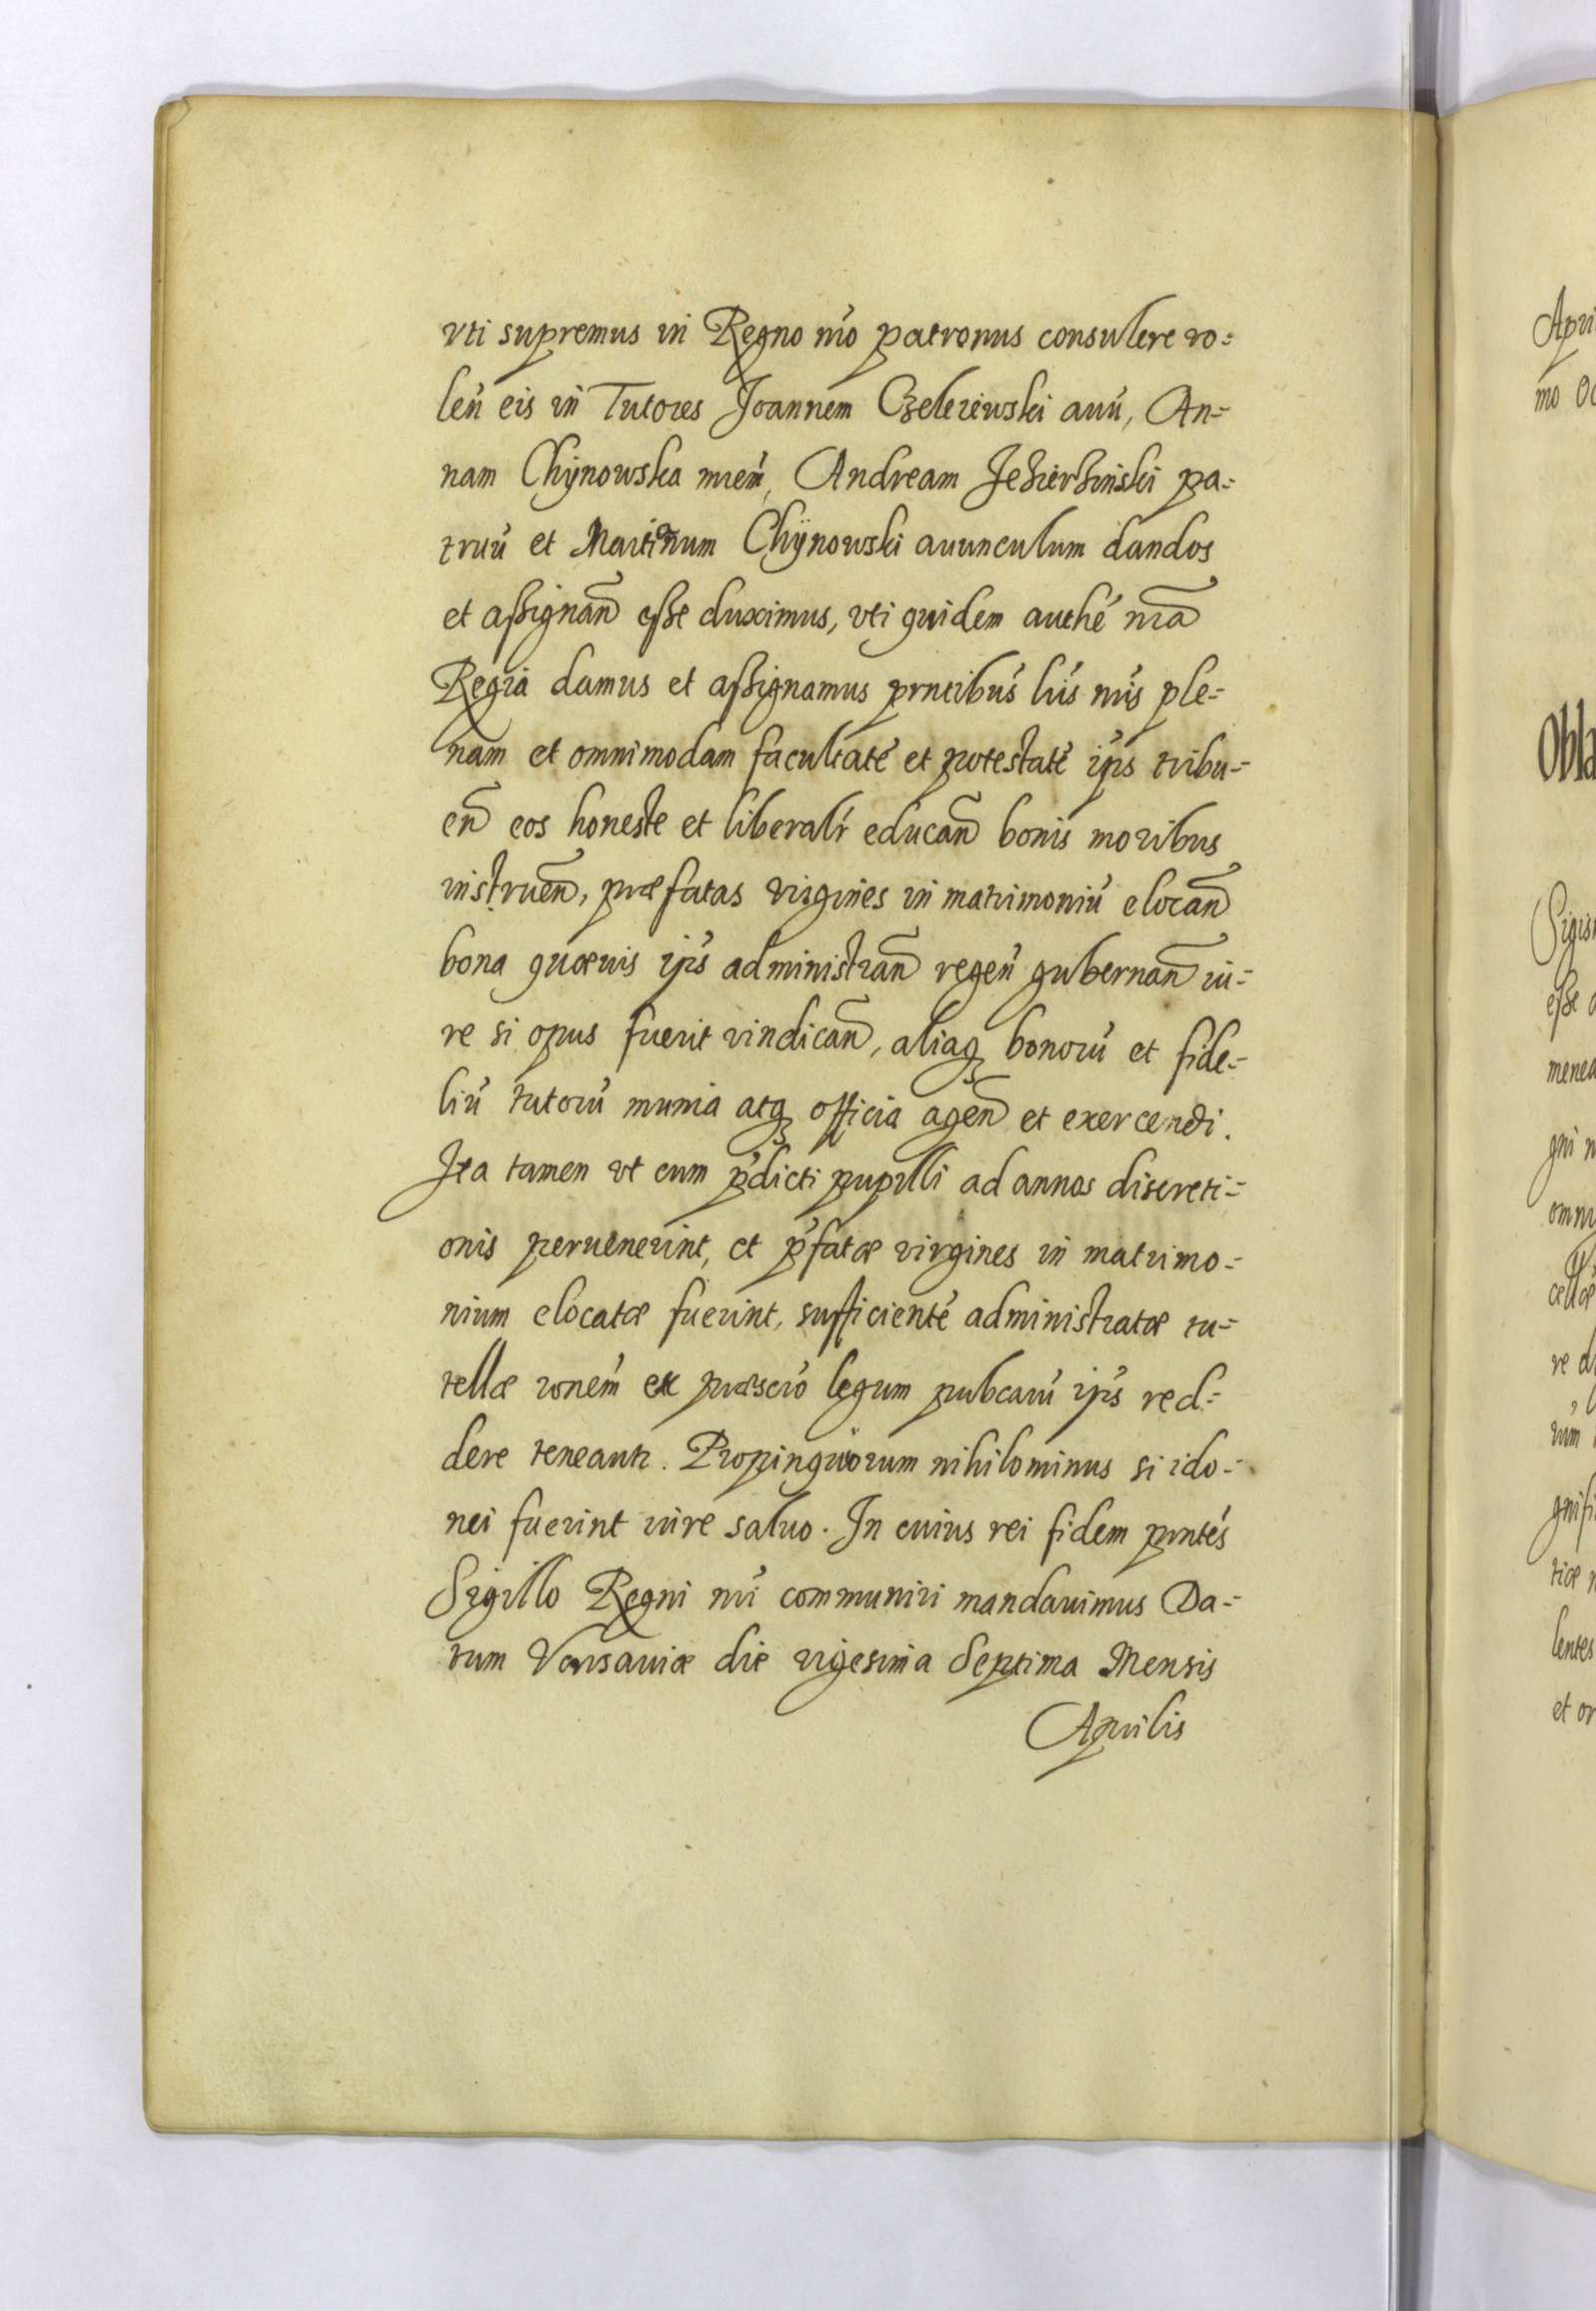 vti supremus in Regno nrõ patronus consulere vo=
leñ eis in Tutores Joannem Czeleiewski auũ, An=
nam Chÿnowska mrem̃, Andream Jezierzinski pa=
truũ et Martinum Chÿnowski auunculum dandos
et assignañ esse duximus, vti quidem authẽ nrã
Regia damus et assignamus prntibus̃ lris̃ nris̃ ple=
nam et omnimodam facultatẽ et potestatẽ ip̃s tribu=
eñ eos honeste et liberalr̃ educañ bonis moribus
instrueñ, præfatas virgines in matrimoniũ elocañ
bona quæuis ip̃s administrañ regeñ gubernañ iu=
re si opus fuerit vindicañ, aliaq3 bonorũ et fide=
liũ tutorũ munia atq3 officia ageñ et exercendi.
Ita tamen vt cum p̃dicti pupilli ad annos discreti=
onis peruenerint, et p̃fatæ virgines in matrimo=
nium elocatæ fuerint, sufficientẽ administratæ tu=
tellæ ronem̃ ex præscrõ legum pubcarũ ip̃s red=
dere teneantr. Propinquorum nihilominus si ido=
nei fuerint iure saluo. In cuius rei fidem prntes̃
Sigillo Regni nrĩ communiri mandauimus Da=
tum Varsauiæ die vigesima Septima Mensis
Aprilis
Apri
mo Oc
Obla
Sigis
esse
menea
gni n
omni
cellæ
re di
rum
gnifi
tiæ
lentes
et or